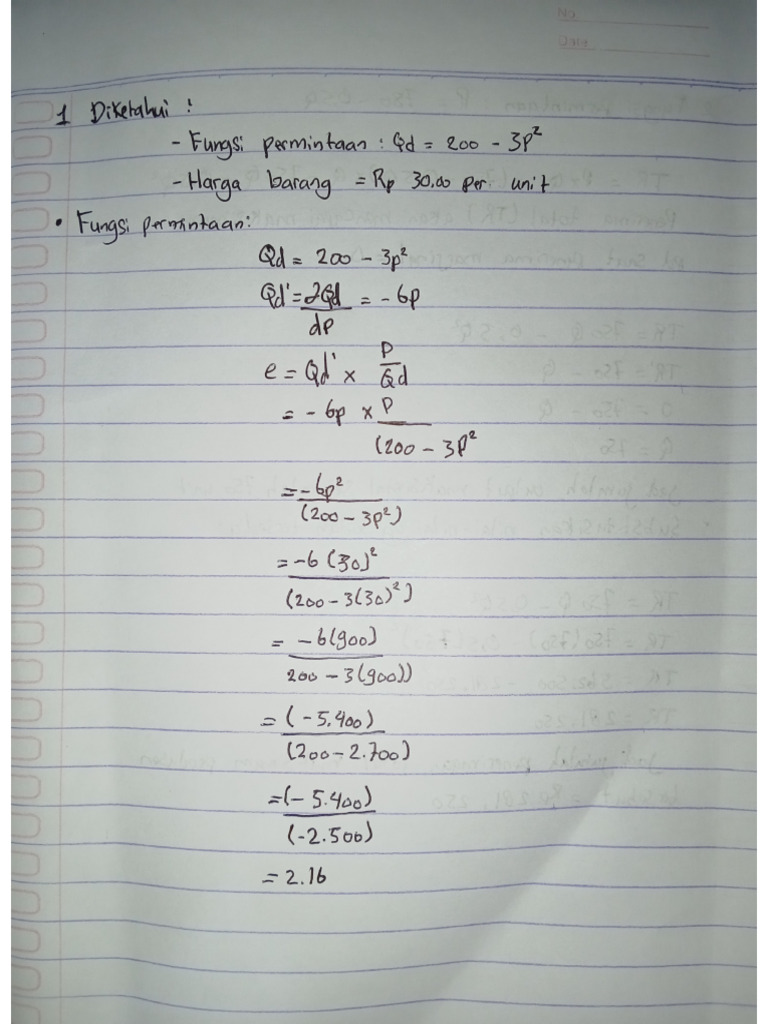 No.
Date
1 Diketahui :
- Fungsi permintaan : Qd = 200 - 3P²
- Harga barang = Rp 30.00 per unit
• Fungsi permintaan:
Qd = 200 - 3p²
Qd' = 2Qd/dP = - 6p
e = Qd' x P/Qd
= - 6p x P/(200 - 3P²
= -6p²/(200 - 3p²)
= -6 (30)²/(200 - 3(30)²)
= -6(900)/200 - 3(900))
= (-5.400)/(200 - 2.700)
= (-5.400)/(-2.500)
= 2.16